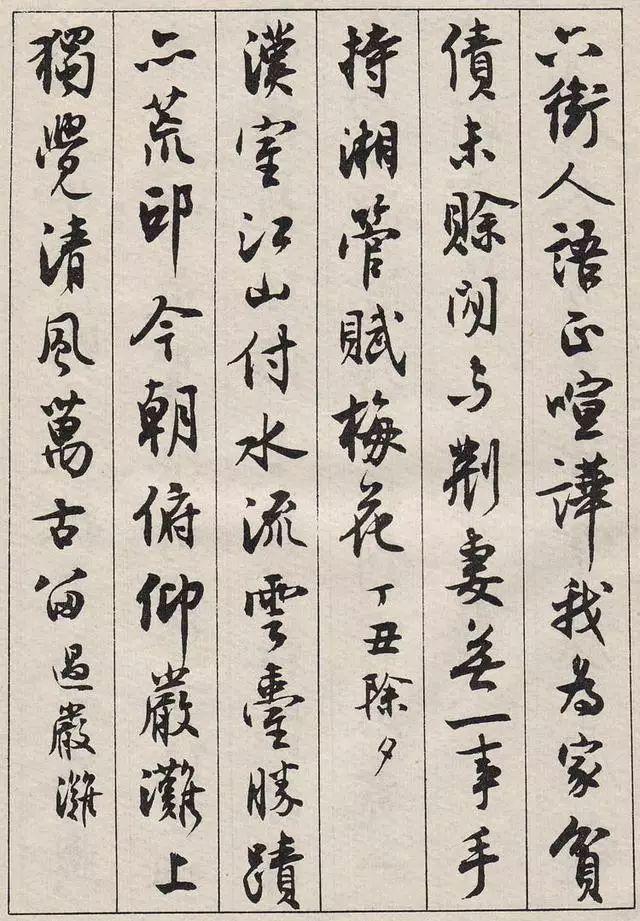 六街人語正喧譁我為家貧
債未賒閒与荆妻無一事手
持湘管賦梅花丁丑除夕
漢室江山付水流雲臺勝蹟
亦荒邱今朝俯仰嚴灘上
獨覺清風萬古留過嚴灘